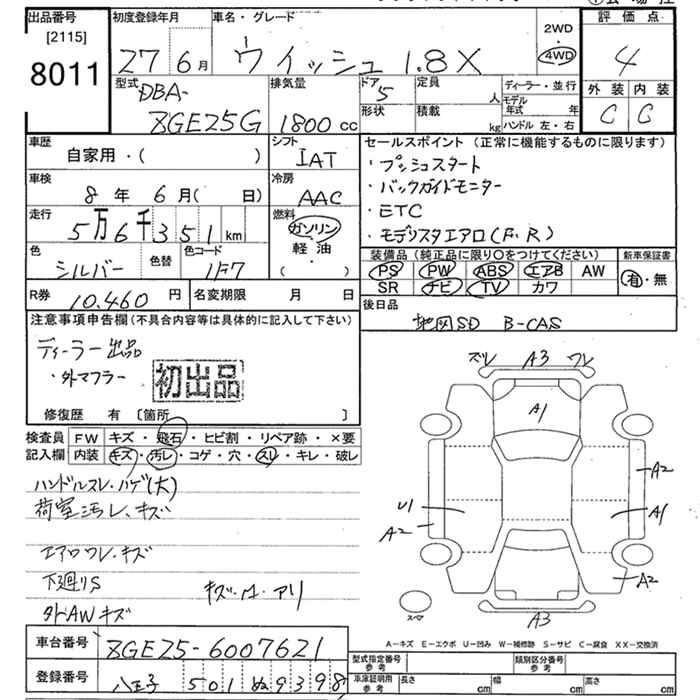 出品番号
[2115]
8011
初度登録年月
27 年 6 月
車名・グレード
ウィッシュ 1.8X
2WD
・
4WD
評価点
4
外装 内装
C C
型式
DBA-
ZGE25G
排気量
1800 cc
ドア
5
形状
定員
人
積載
kg
ディーラー・並行
モデル
年式 年
ハンドル 左・右
車歴
自家用・( )
シフト
IAT
セールスポイント (正常に機能するものに限ります)
・プッシュスタート
・バックガイドモニター
・ETC
・モデリスタエアロ(F・R)
車検
8 年 6 月( 日)
冷房
AAC
走行
5万6千351 km
燃料
ガソリン
軽・油
( )
色
シルバー
色替
色コード
1F7
R券
10.460 円
名変期限 月 日
装備品 (純正品に限り○をつけてください)
PS PW ABS エアB AW
SR ナビ TV カワ
新車保証書
有・無
後日品
地図SD B-CAS
注意事項申告欄 (不具合内容等は具体的に記入して下さい)
ディーラー出品
・外マフラー
初出品
修復歴 有 〔箇所 〕
検査員
記入欄
FW キズ・飛石・ヒビ割・リペア跡・×要
内装 キズ・汚レ・コゲ・穴・スレ・キレ・破レ
ハンドルスレ・ハゲ(大)
荷室汚レ、キズ
エアロワレ・キズ
下廻りS
キズ・M・アリ
外AWキズ
ズレ A3 ワレ
A1
A2
U1
A1
A2
A2
スペア
A3
A-キズ E-エクボ U-凹み W-補修跡 S-サビ C-腐食 XX-交換済
車台番号
ZGE25-6007621
登録番号
八王子 501 ぬ 9398
型式指定番号
参考
類別区分番号
参考
車庫証明用
参考
長さ cm
幅 cm
高さ cm